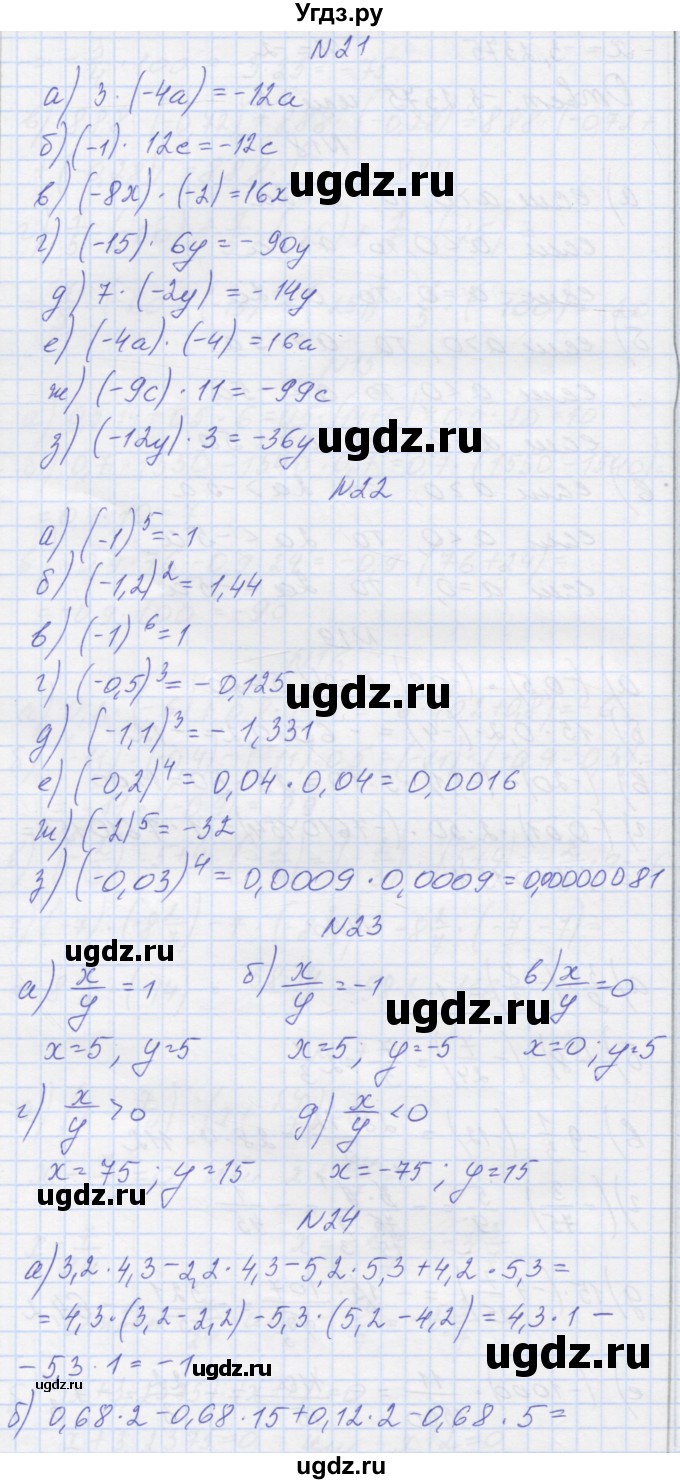 Угдз.ру
N21
а) 3 · (-4a) = -12a
б) (-1) · 12c = -12c
в) (-8x) · (-2) = 16x
ugdz.ru
г) (-15) · 6y = -90y
д) 7 · (-2y) = -14y
е) (-4a) · (-4) = 16a
ж) (-9c) · 11 = -99c
з) (-12y) · 3 = -36y
ugdz.ru
N22
а) (-1)^5 = -1
б) (-1,2)^2 = 1,44
в) (-1)^6 = 1
г) (-0,5)^3 = -0,125
ugdz.ru
д) (-1,1)^3 = -1,331
е) (-0,2)^4 = 0,04 · 0,04 = 0,0016
ж) (-2)^5 = -32
з) (-0,03)^4 = 0,0009 · 0,0009 = 0,00000081
N23
ugdz.ru
а) x/y = 1 б) x/y = -1 в) x/y = 0
ugdz.ru
x=5; y=5 x=5; y=-5 x=0; y=5
г) x/y > 0 д) x/y < 0
x=75; y=15 x=-75; y=15
ugdz.ru
N24
а) 3,2 · 4,3 - 2,2 · 4,3 - 5,2 · 5,3 + 4,2 · 5,3 =
= 4,3 · (3,2 - 2,2) - 5,3 · (5,2 - 4,2) = 4,3 · 1 -
- 5,3 · 1 = -1
ugdz.ru
ugdz.ru
ugdz.ru
б) 0,68 · 2 - 0,68 · 15 + 0,12 · 2 - 0,68 · 5 =
ugdz.ru